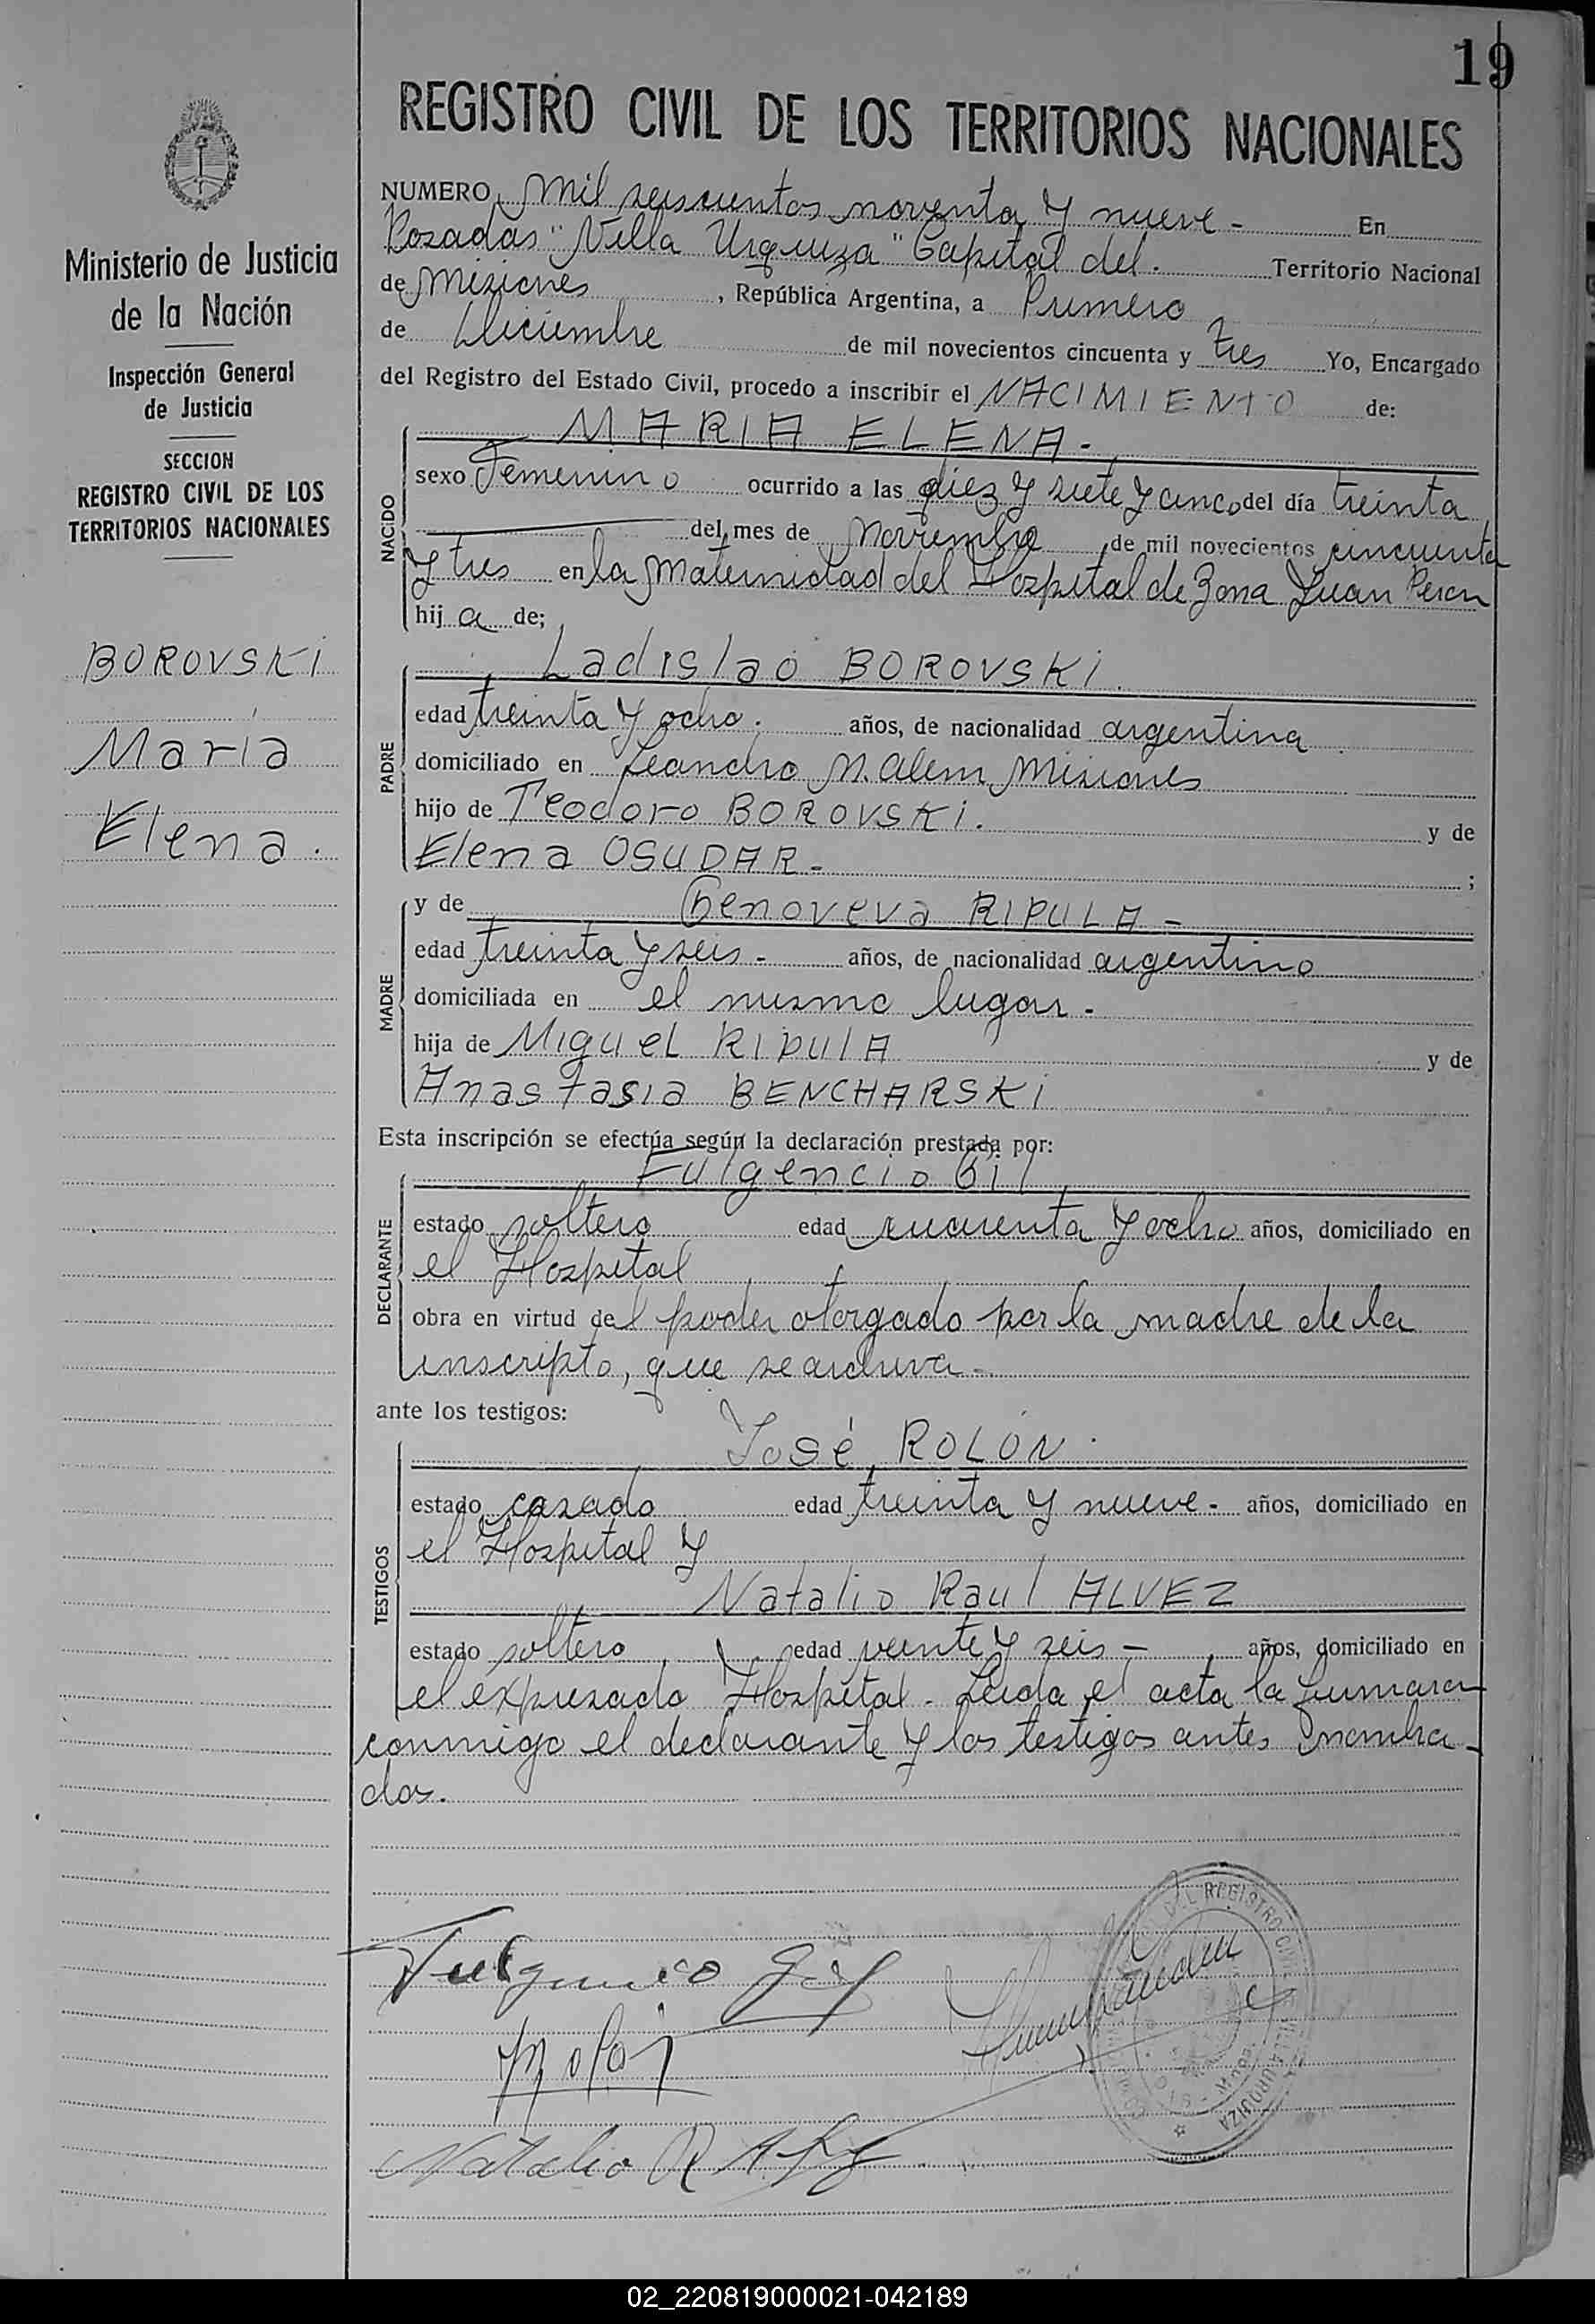 19
REGISTRO CIVIL DE LOS TERRITORIOS NACIONALES
Ministerio de Justicia
de la Nación
Inspección General
de Justicia
SECCION
REGISTRO CIVIL DE LOS
TERRITORIOS NACIONALES
BOROVSKI
María
Elena.
NUMERO Mil seiscientos noventa y nueve - En
Posadas "Villa Urquiza" Capital del. Territorio Nacional
de Misiones, República Argentina, a Primero
de Diciembre de mil novecientos cincuenta y tres Yo, Encargado
del Registro del Estado Civil, procedo a inscribir el NACIMIENTO de:
MARIA ELENA-
NACIDO
sexo Femenino ocurrido a las diez y siete y cinco del día treinta
del mes de Noviembre de mil novecientos cincuenta
y tres en la Maternidad del Hospital de Zona Juan Peron
hija de;
Ladislao BOROVSKI.
PADRE
edad treinta y ocho. años, de nacionalidad argentina
domiciliado en Leandro N. Alem Misiones
hijo de Teodoro BOROVSKI. y de
Elena OSUDAR- ;
y de Genoveva RIPULA-
MADRE
edad treinta y seis- años, de nacionalidad argentino
domiciliada en el mismo lugar-
hija de Miguel RIPULA y de
Anastasia BENCHARSKI
Esta inscripción se efectúa según la declaración prestada por:
Fulgencio Gil
DECLARANTE
estado soltero edad cuarenta y ocho años, domiciliado en
el Hospital
obra en virtud del poder otorgado por la madre de la
inscripto, que se archiva-
ante los testigos:
José ROLÓN.
TESTIGOS
estado casado edad treinta y nueve- años, domiciliado en
el Hospital y
Natalio Raul ALVEZ
estado soltero edad veinte y seis- años, domiciliado en
el expresado Hospital- Leida el acta la firmaran
conmigo el declarante y los testigos antes nombra-
dos.
Fulgencio Gil
DEL REGISTRO CIVIL
VILLA URQUIZA
Rolon
Natalio R Alvez
02_220819000021-042189